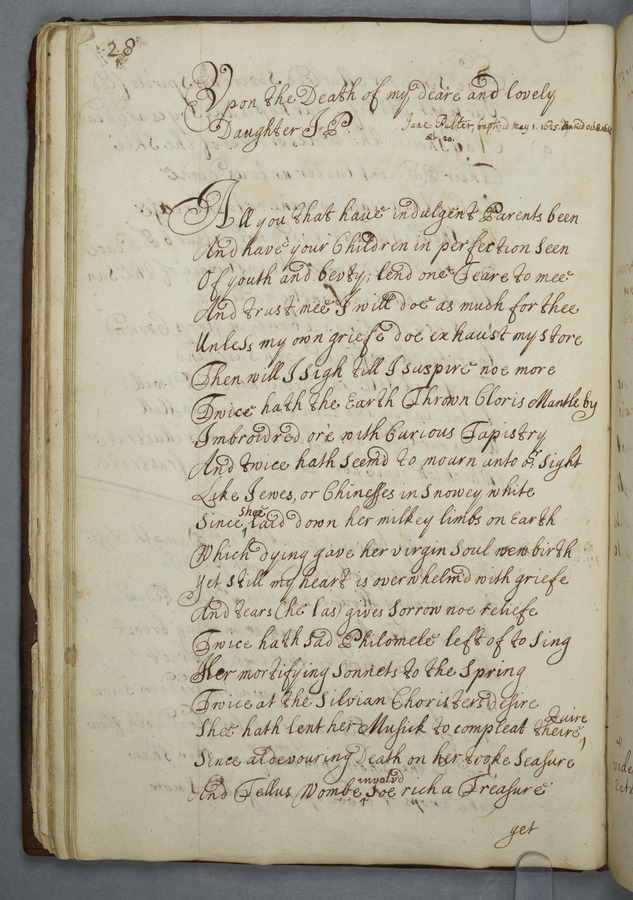 28
Vpon the Death of my deare and lovely
Daughter J. P.
Jane Pulter, baptized May 1. 1625.
Æt. 20.
All you that have indulgent Parents been
And have your Children in perfection seen
Of youth and bevty; lend one Teare to mee
And trust mee I will doe as much for thee
Unless my own griefe doe exhaust my store
Then will I sigh till I suspire noe more
Twice hath the Earth Thrown Cloris Mantle by
Imbroidred ore with Curious Tapistry
And twice hath seemd to mourn unto or sight
Like Jewes, or Chinesses in snowey white
Since shee laid down her milkey limbs on Earth
Which dying gave her virgin soul new birth
yet still my heart is overwhelmd with griefe
And tears (he las) gives sorrow noe reliefe
Twice hath sad Philomele left of to sing
Her mortifying sonnets to the spring
Twice at the silvian Choristers desire
shee hath lent her Musick to compleat theire Quire
Since aldevouring Death on her tooke seasure
And Tellus Wombe involvd soe rich a Treasure
yet